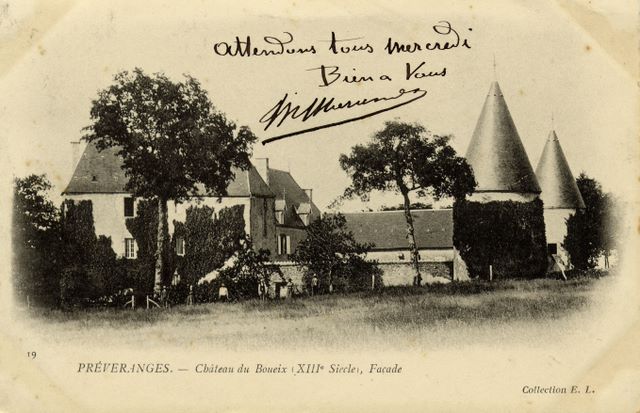 Attendons tous mercredi
Bien a Vous
19
PRÉVERANGES. — Château du Boueix (XIIIe Siecle), Facade
Collection E. L.